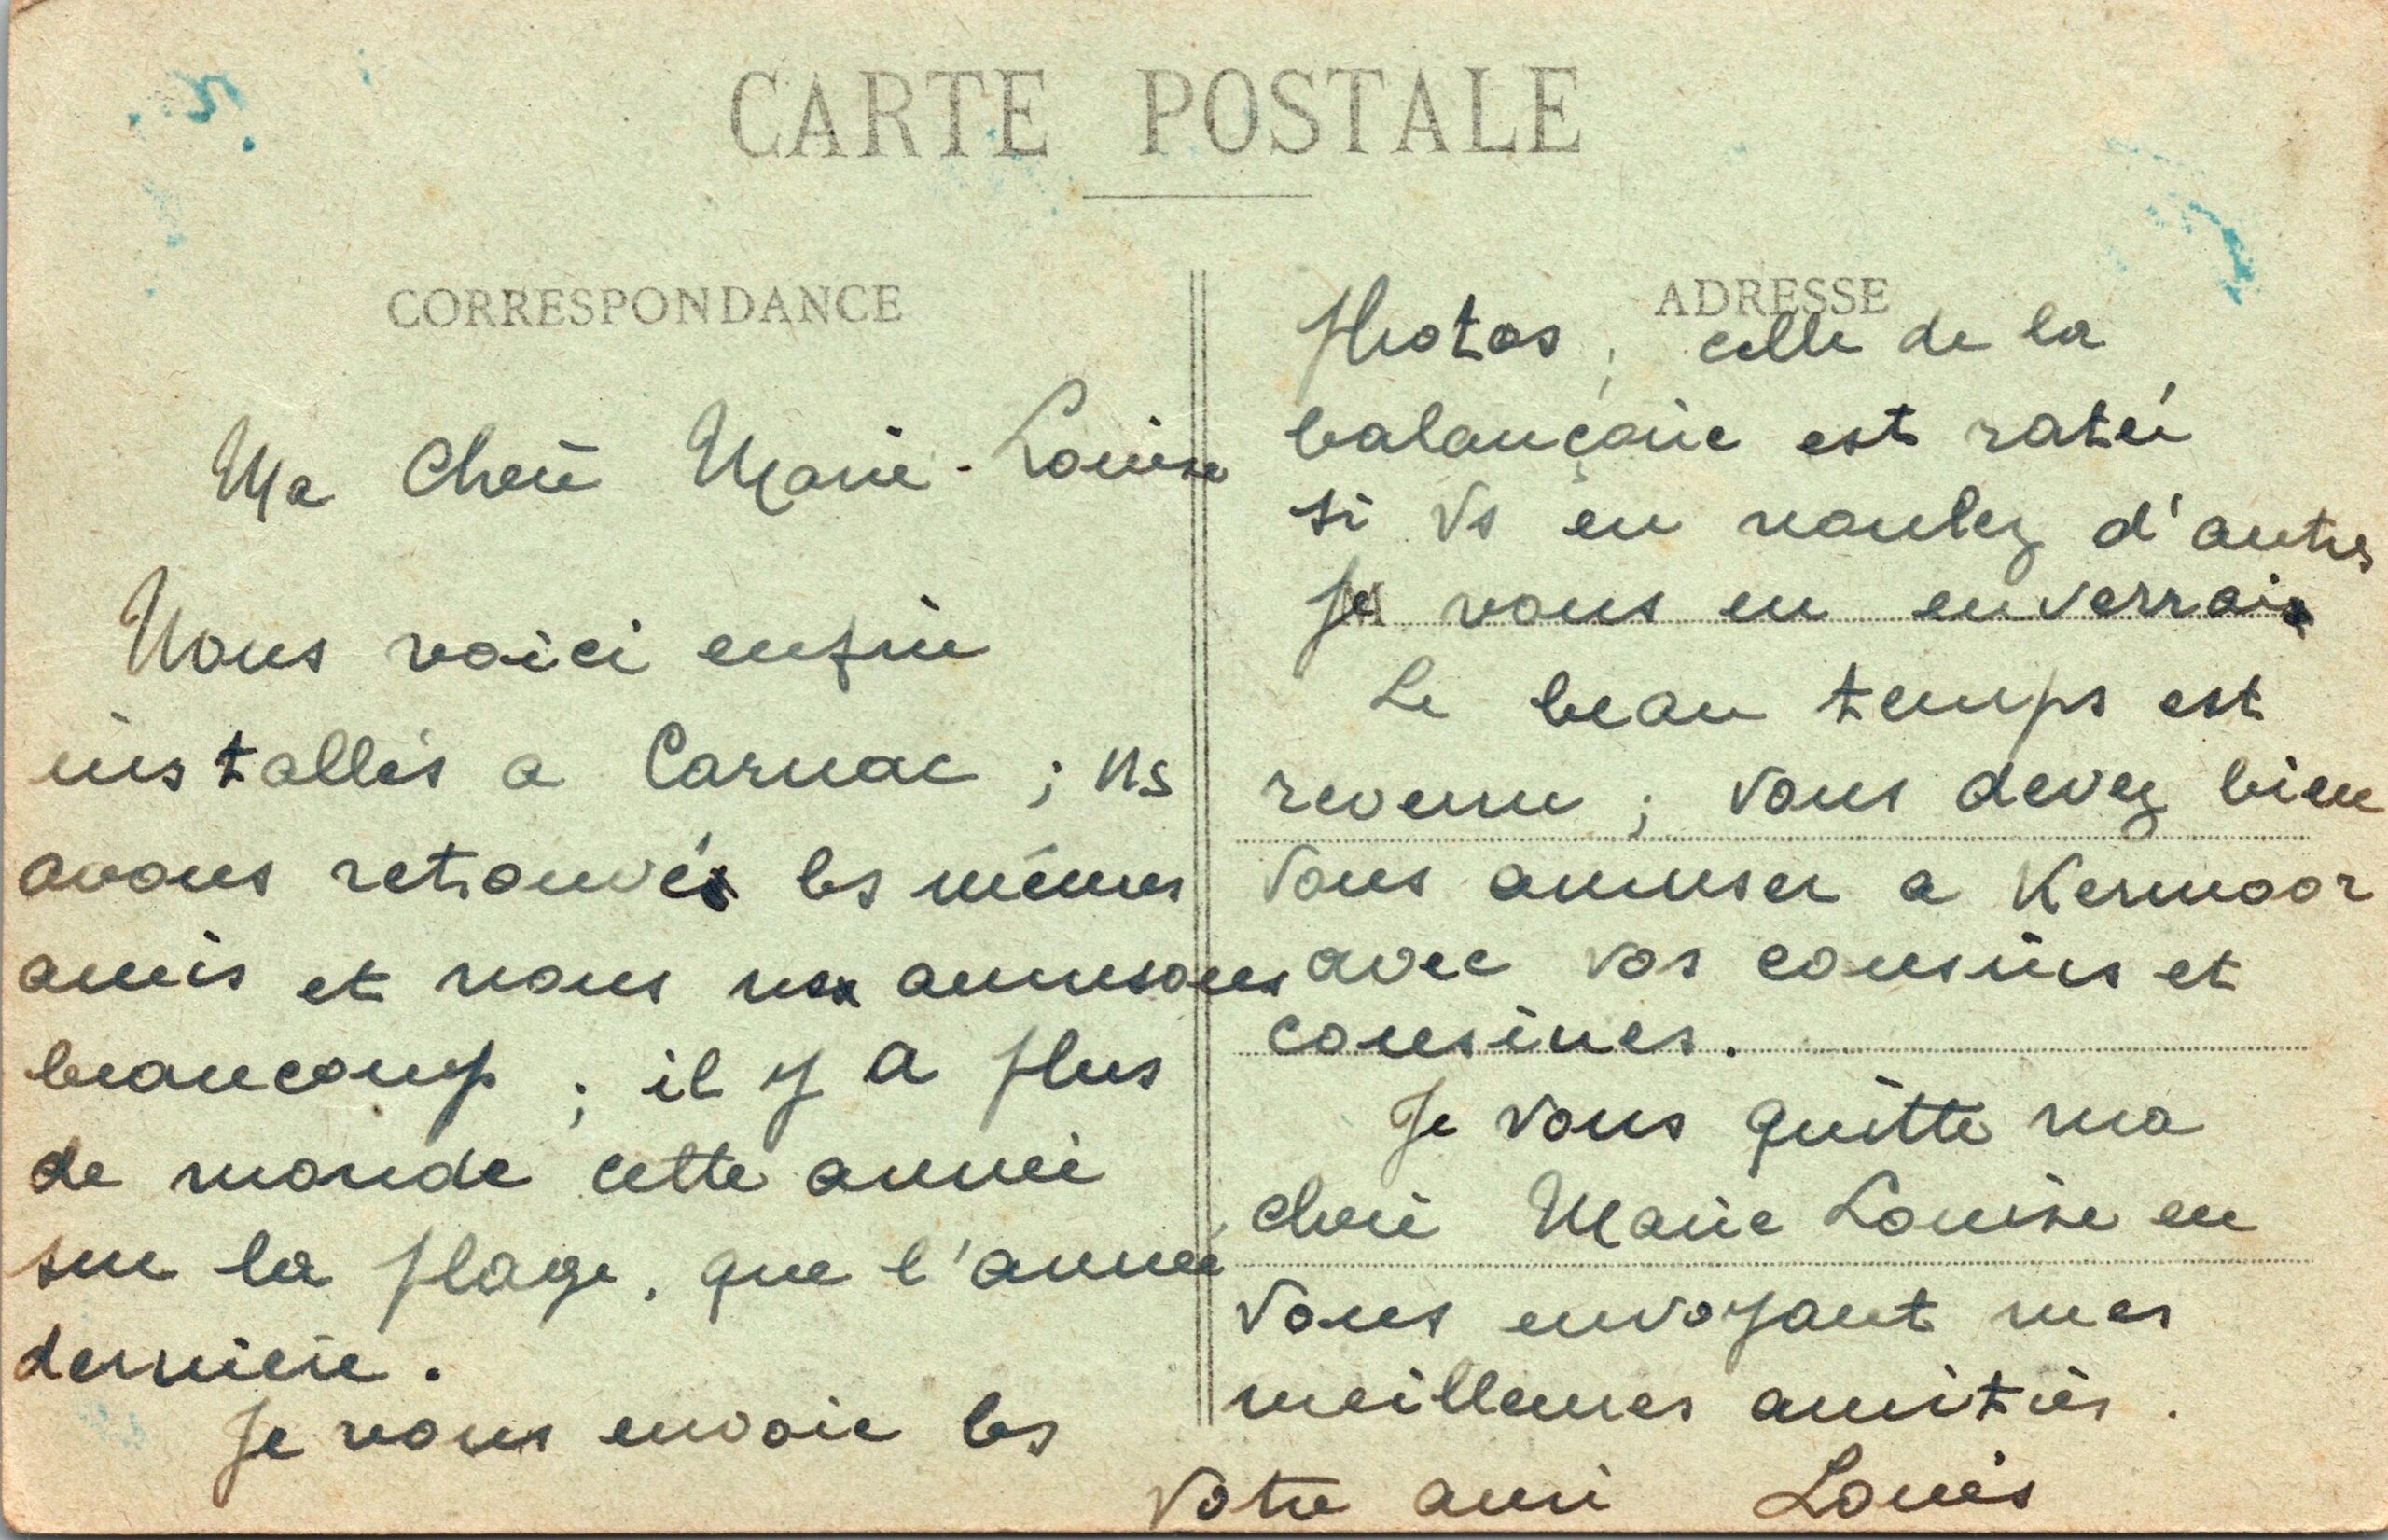 CARTE POSTALE
CORRESPONDANCE
Ma Chère Marie-Louise
Nous voici enfin
installés a Carnac ; ns
avons retrouvé les mêmes
amis et nous nous amusons
beaucoup ; il y a plus
de monde cette année
sur la plage, que l'année
dernière.
Je vous envoie les
ADRESSE
photos, celle de la
balançoire est ratée
si vs en voulez d'autres
Je vous en enverrai
Le beau temps est
revenu ; vous devez bien
vous amuser a Kermoor
avec vos cousins et
cousines.
Je vous quitte ma
chère Marie Louise en
vous envoyant mes
meilleures amitiés.
Votre ami Louis